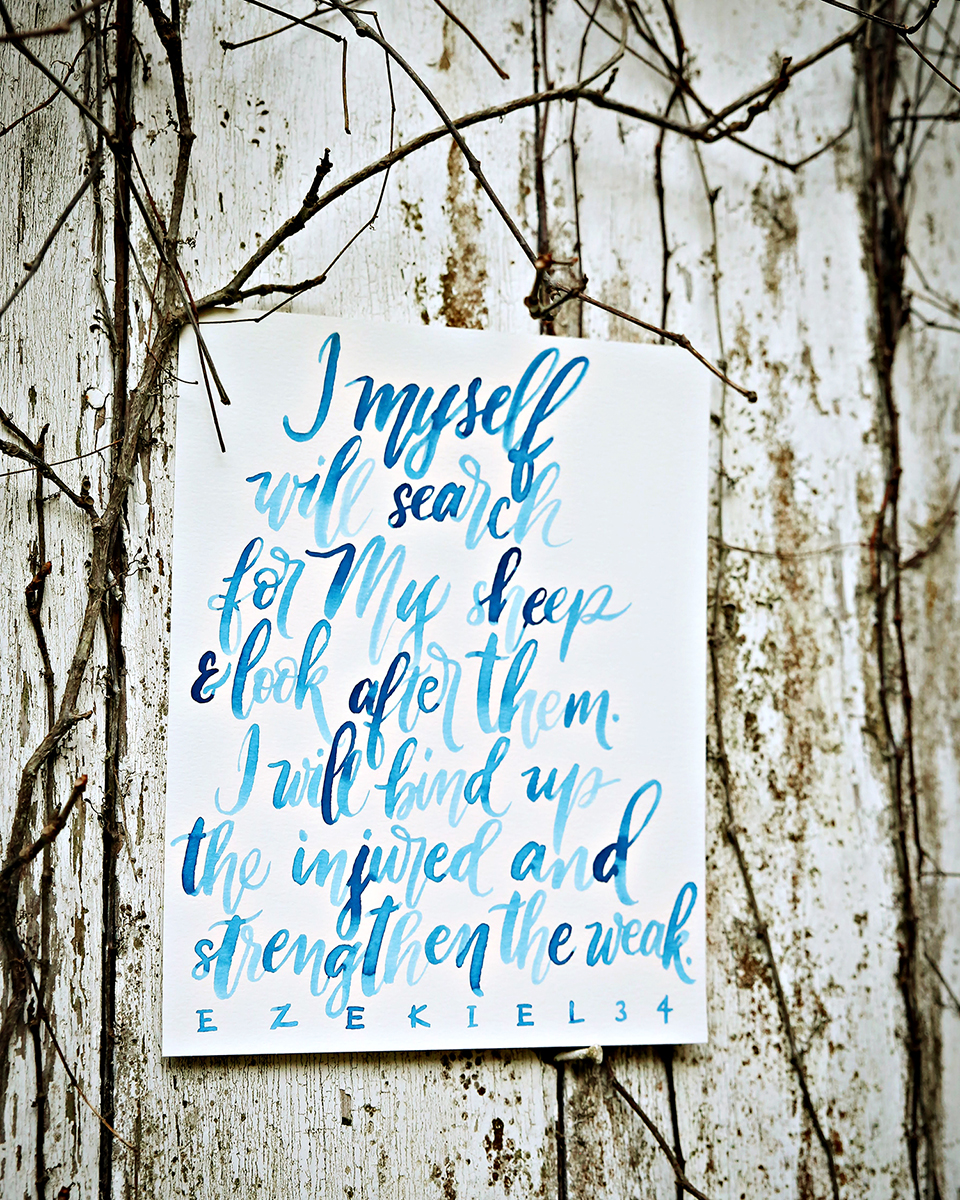 I myself
will search
for My sheep
& look after them.
I will bind up
the injured and
strengthen the weak.
EZEKIEL 34